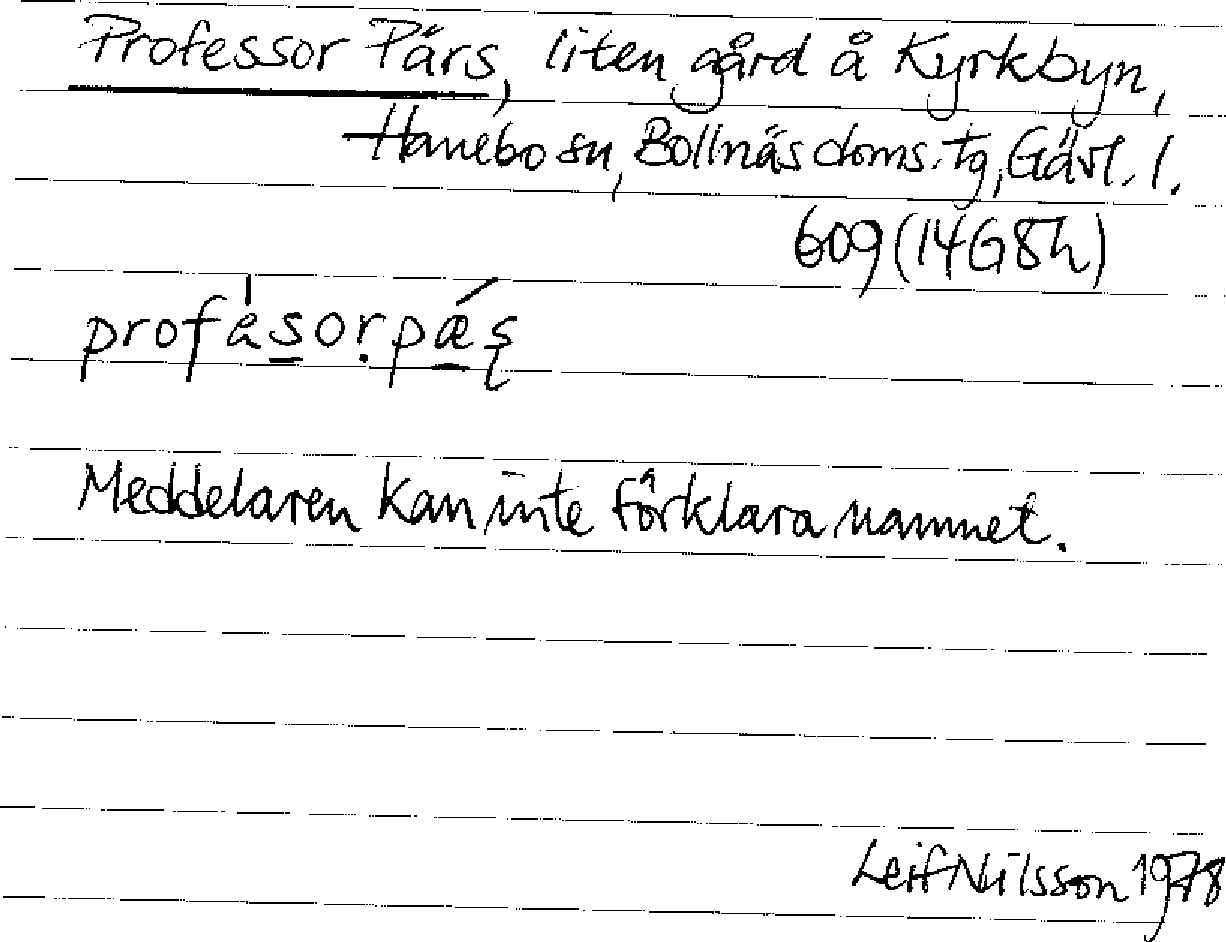 Professor Pärs, liten gård å Kyrkbyn,
Hanebo sn, Bollnäs doms. tg, Gävl. l.
609 (14G8h)
Meddelaren kan inte förklara namnet.
Leif Nilsson 1978